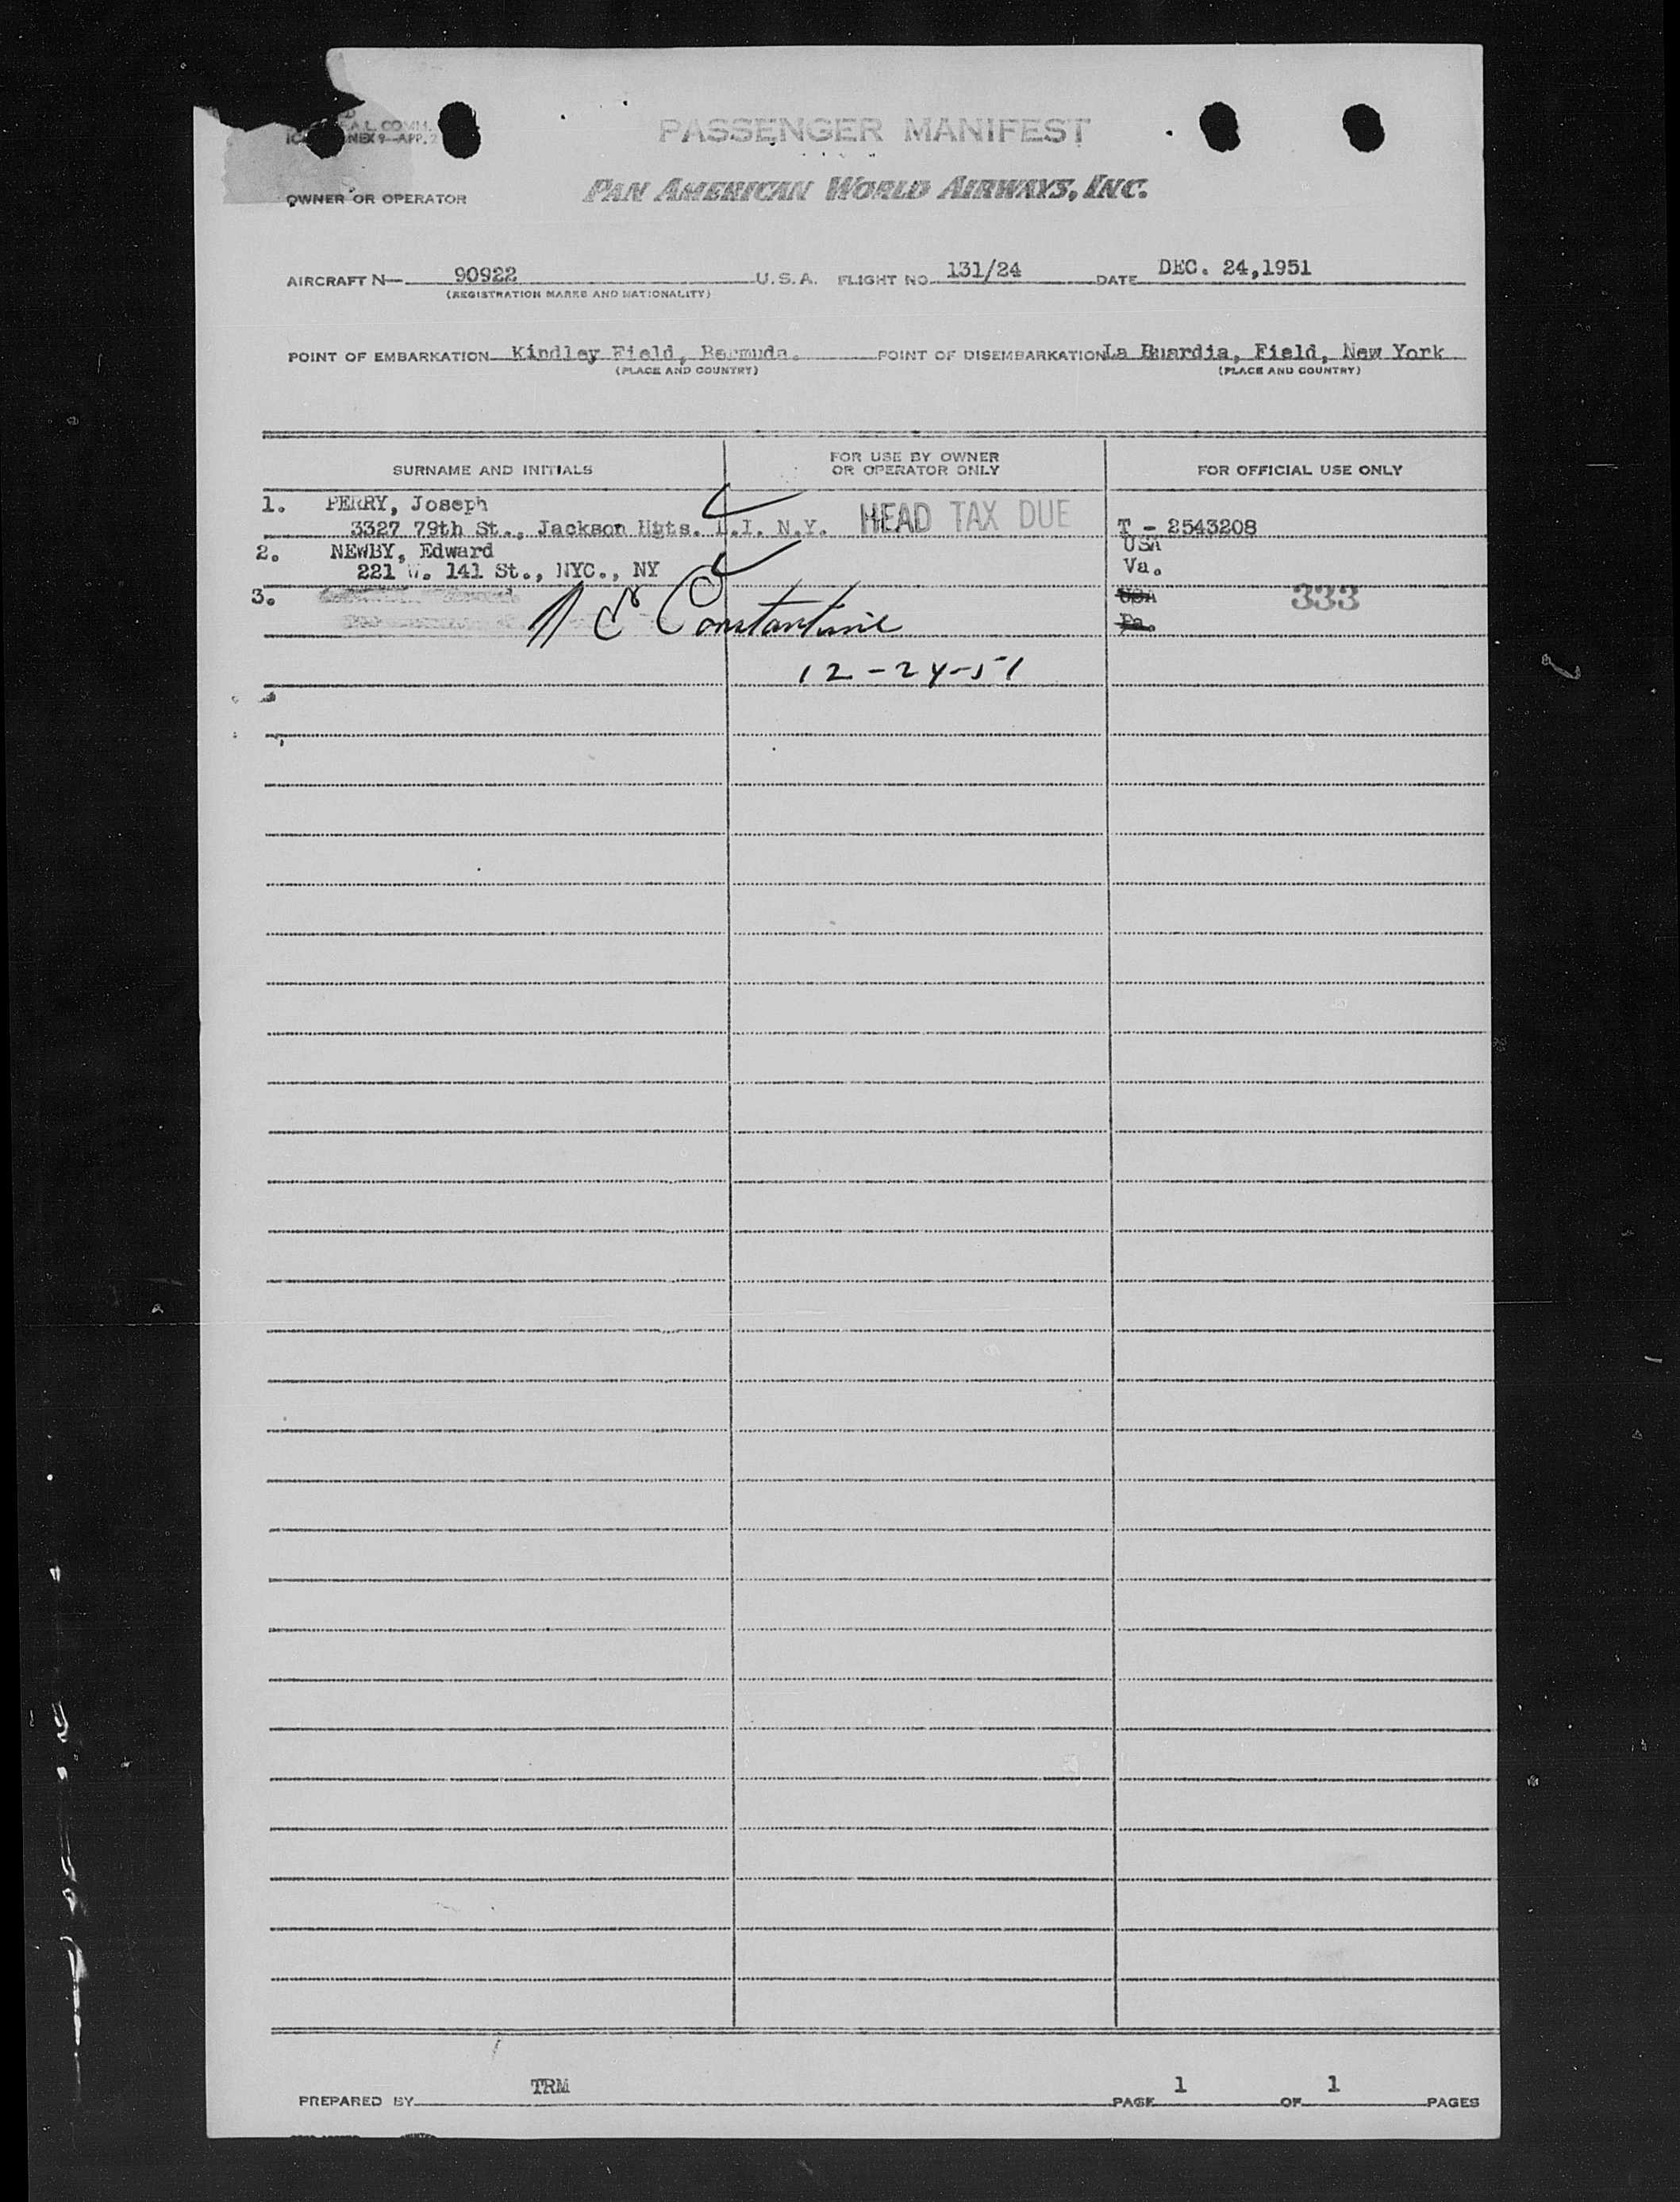 PASSENGER MANIFEST
OWNER OR OPERATOR PAN AMERICAN WORLD AIRWAYS, INC.
AIRCRAFT N 90922 U.S.A. FLIGHT NO. 131/24 DATE DEC. 24,1951
(REGISTRATION MARKS AND NATIONALITY)
POINT OF EMBARKATION Kindley Field, Bermuda. POINT OF DISEMBARKATION La Field, New York
(PLACE AND COUNTRY) (PLACE AND COUNTRY)
SURNAME AND INITIALS FOR USE BY OWNER OR OPERATOR ONLY FOR OFFICIAL USE ONLY
1. PERRY, Joseph
3327 79th St., Jackson Hgts. L.I. N.Y. HEAD TAX DUE T - 2543208
2. NEWBY, Edward USA
221 W. 141 St., NYC., NY Va.
3. USA 333
Constantine Pa.
12-24-51
PREPARED BY TRM PAGE 1 OF 1 PAGES